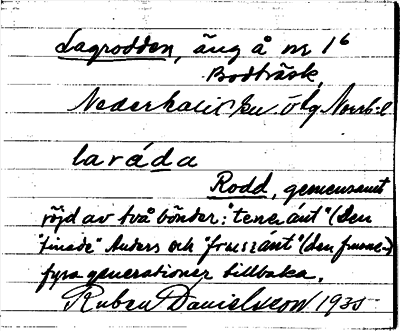 Lagrodden, äng å nr 1⁶
Bodträsk,
Nederkalix sn. ö lg Norrb.l
laråda
Rodd, gemensamt
röjd av två bönder: "tenerant" (den
"finade" Anders och "
fyra generationer tillbaka.
Ruben Danielsson 1935